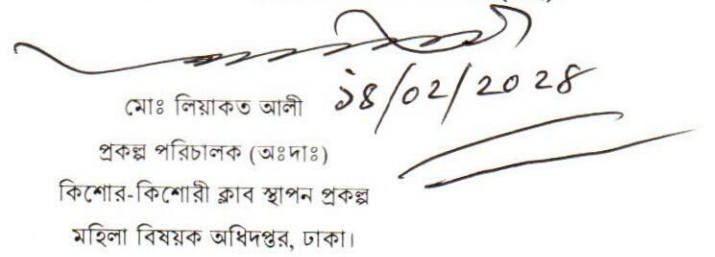 ১৪/০২/২০২৪
মোঃ লিয়াকত আলী
প্রকল্প পরিচালক (অঃদাঃ)
কিশোর-কিশোরী ক্লাব স্থাপন প্রকল্প
মহিলা বিষয়ক অধিদপ্তর, ঢাকা।